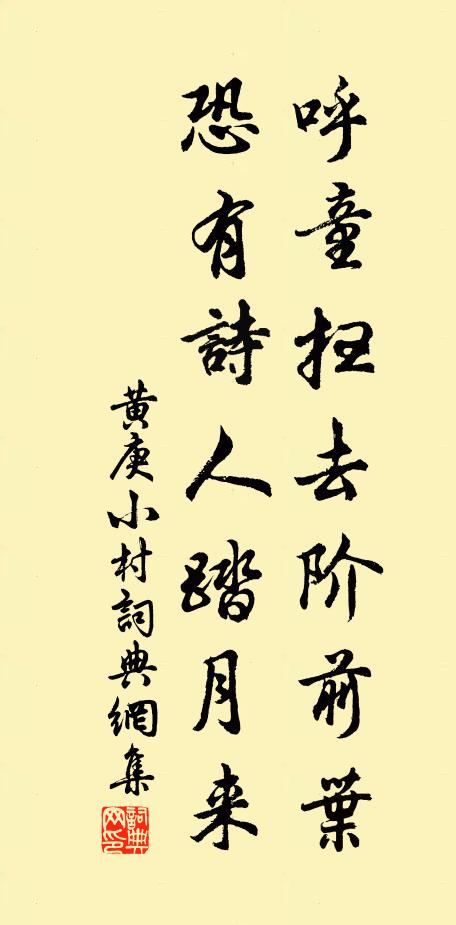 呼童扫去阶前葉
恐有詩人踏月来
黄庚小村詞典網集
詞典網印